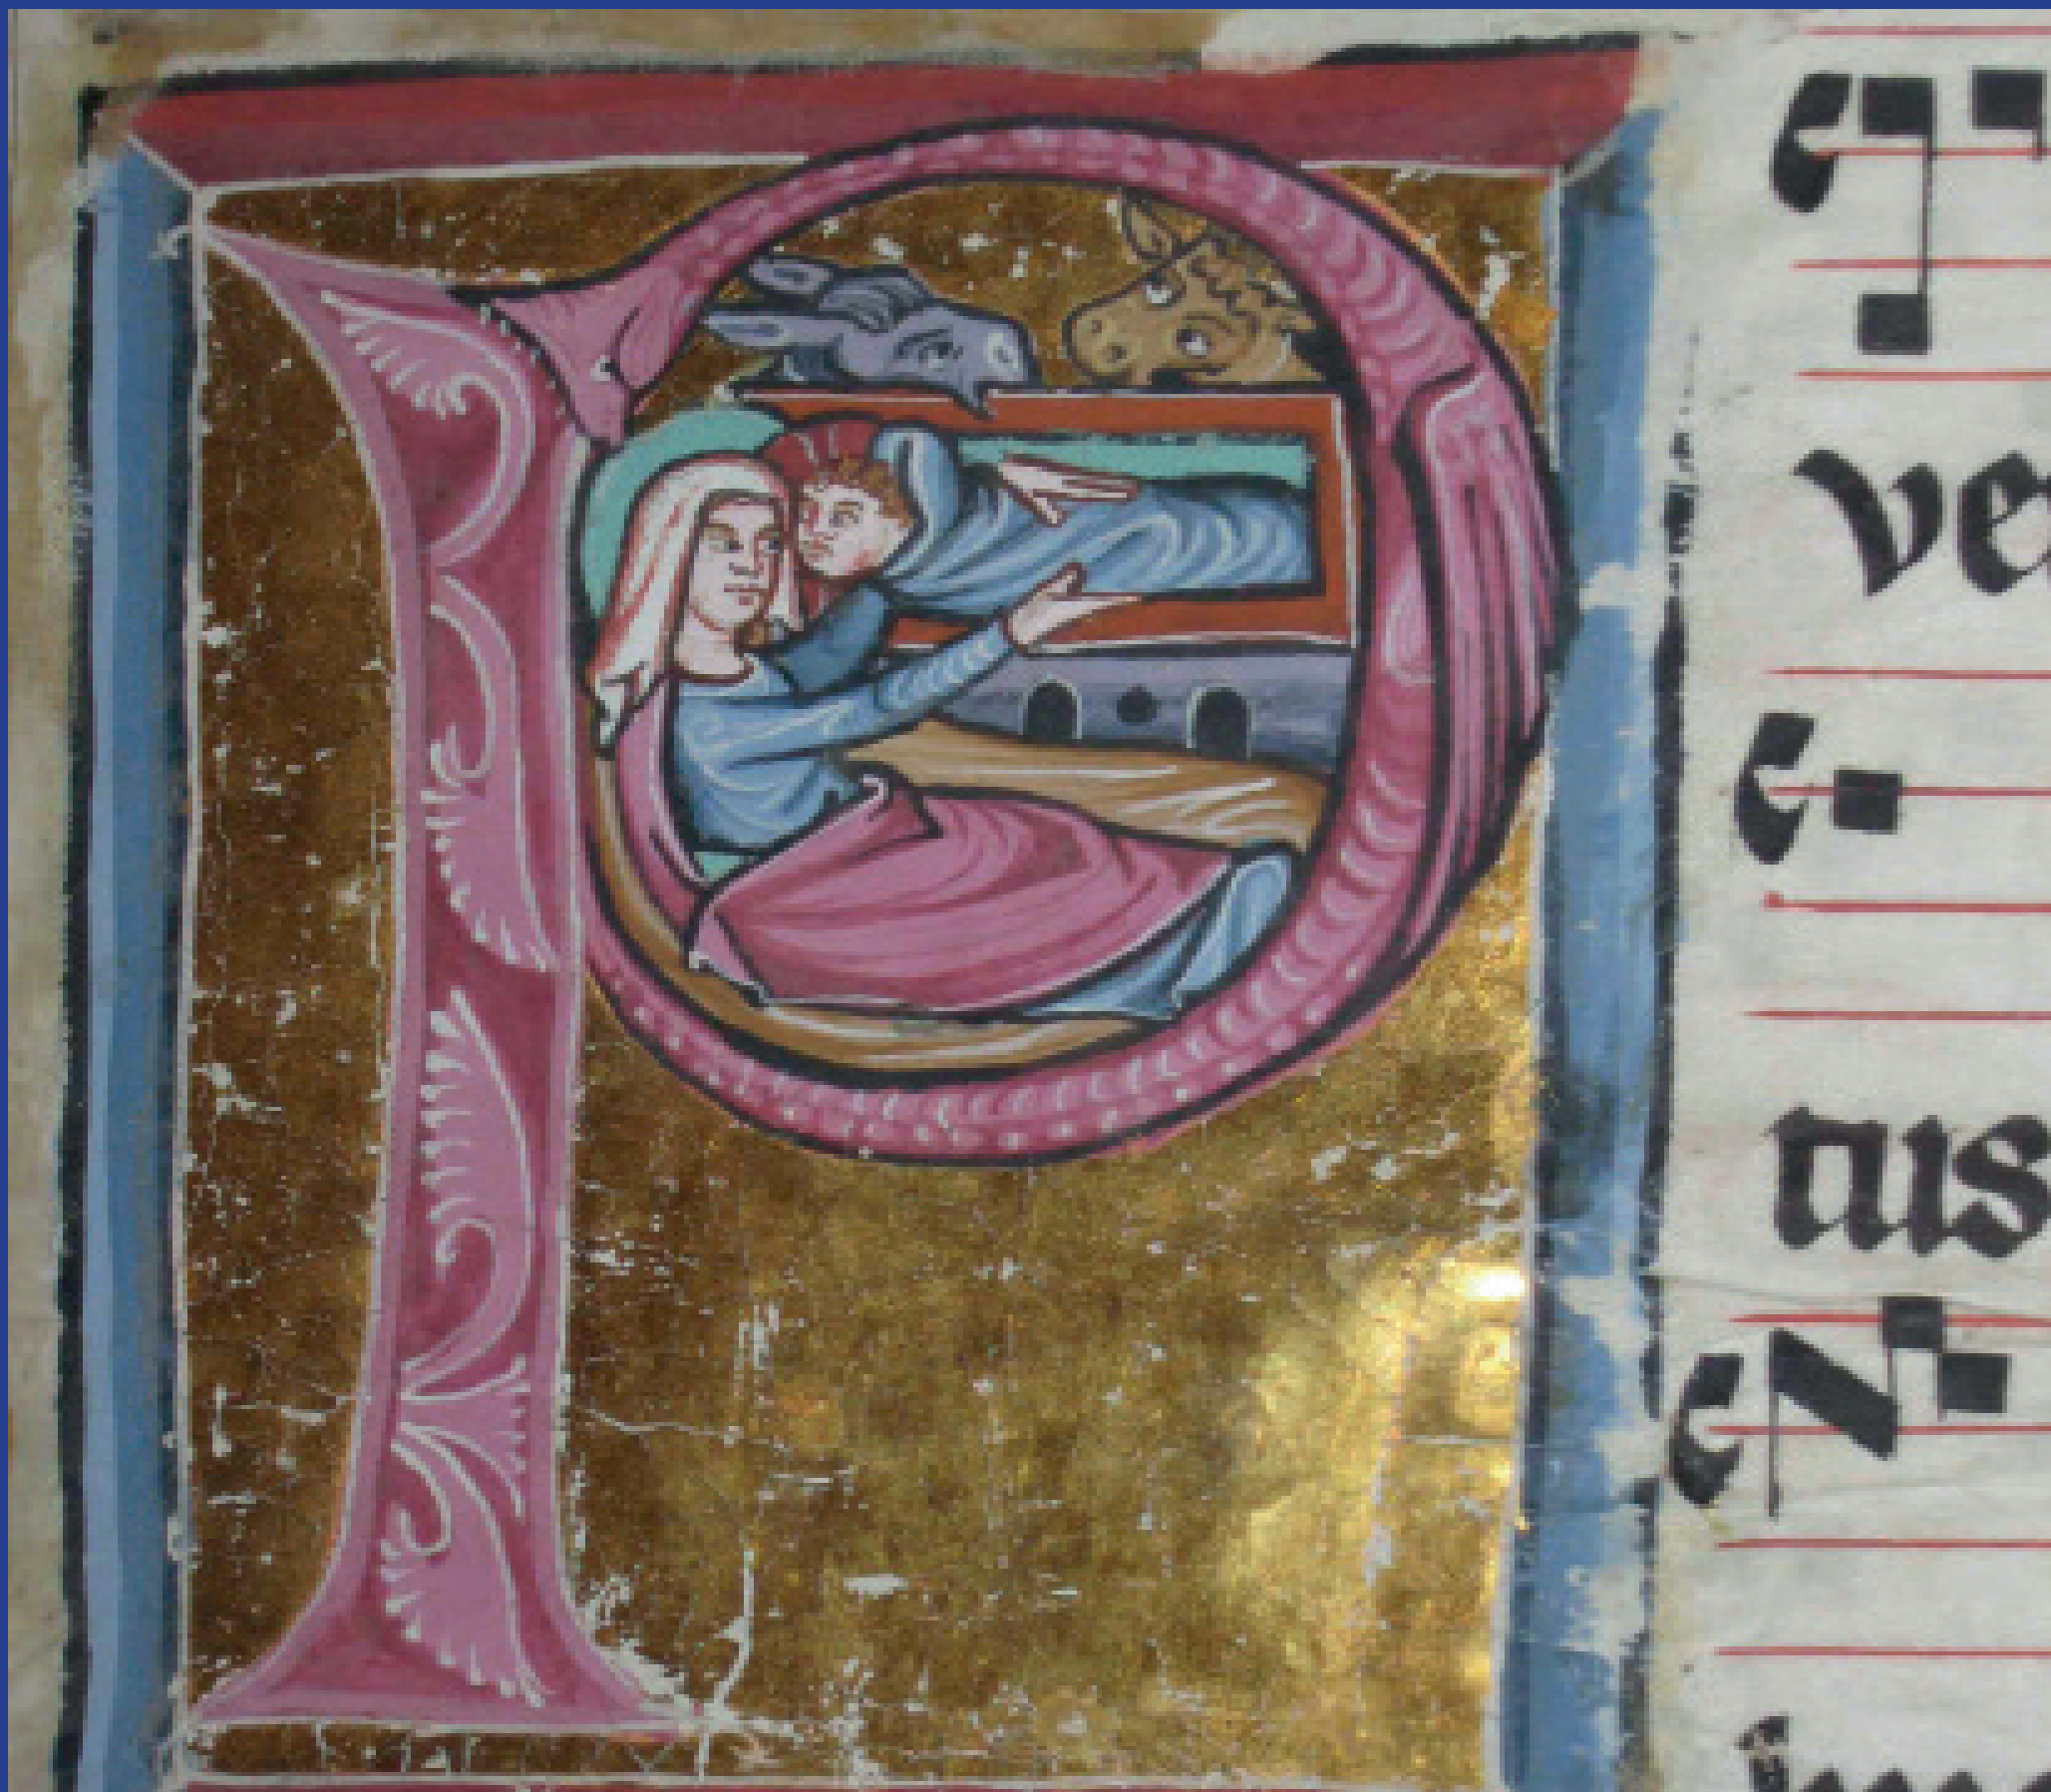 P
ve
tus